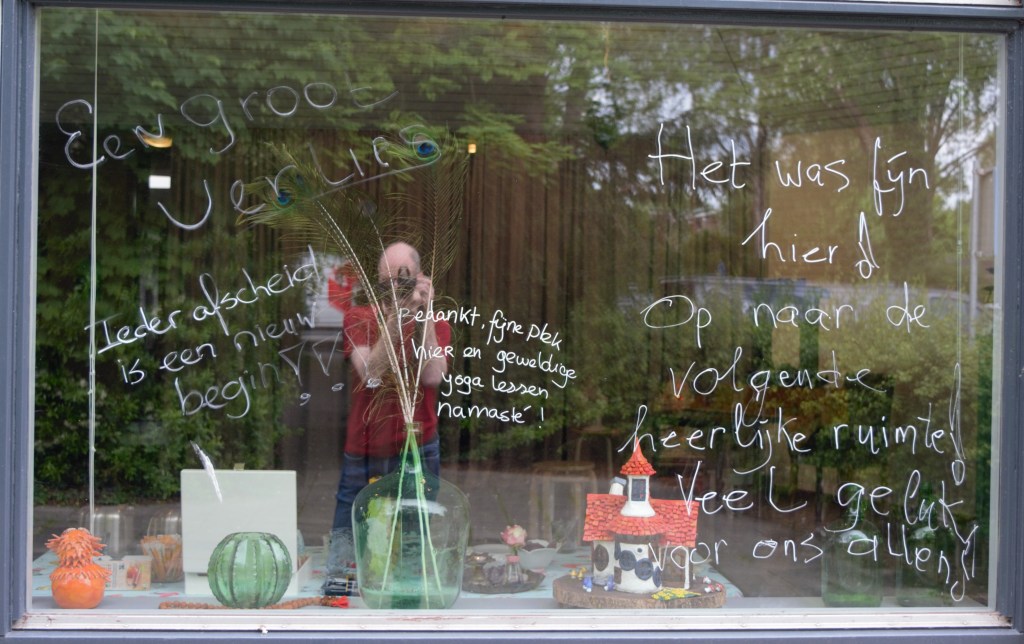 Een groot
verlies
Ieder afscheid
is een nieuw
begin!!!
Bedankt, fijne plek
hier en geweldige
yoga lessen
namasté!
Het was fijn
hier!
Op naar de
volgende
heerlijke ruimte!
Veel geluk
voor ons allen!